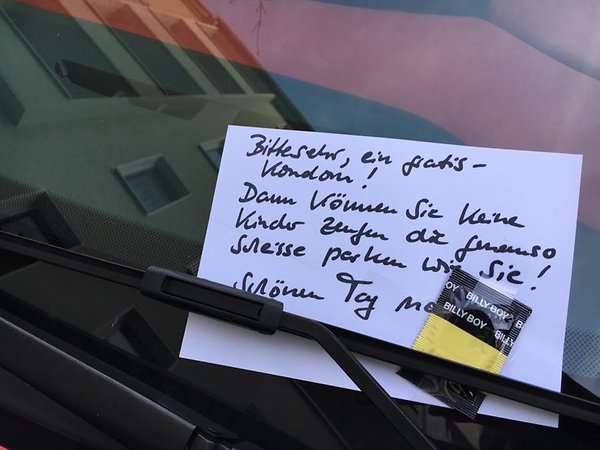 Bittesehr, ein gratis-
Kondom!
Dann können Sie keine
Kinder zeugen die genauso
scheisse parken wie Sie!
Schönen Tag no
OY BILLYBOY B
BILLYBOY
BILLY